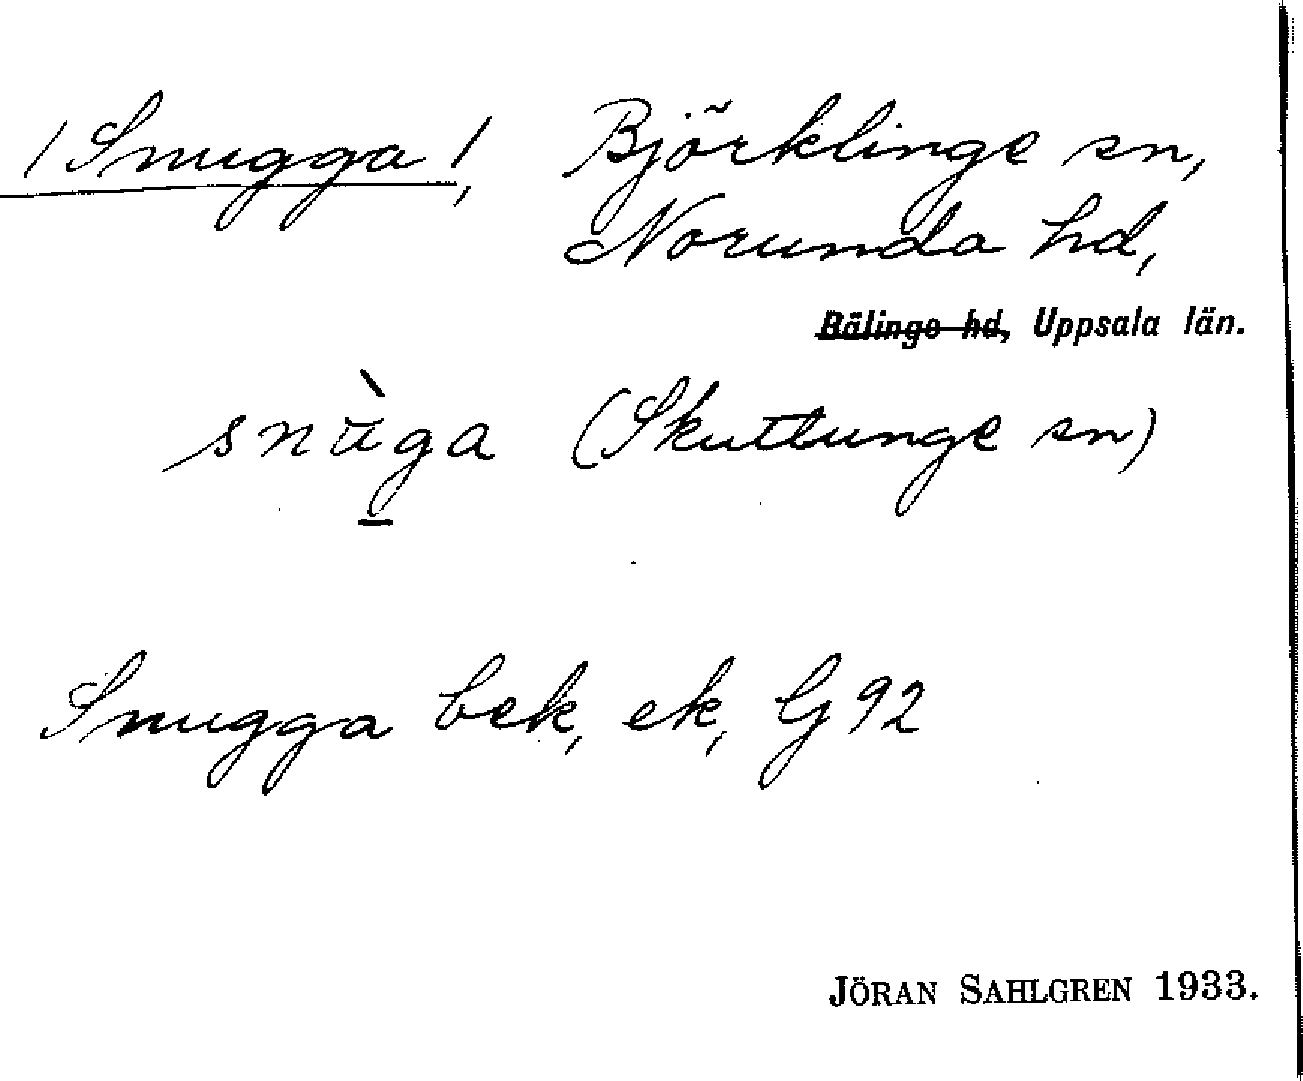 /Snugga/, Björklinge sn,
Norunda hd,
Bälinge hd, Uppsala län.
snùga (Skuttunge sn)
Snugga bek, ek, G 92
JÖRAN SAHLGREN 1933.